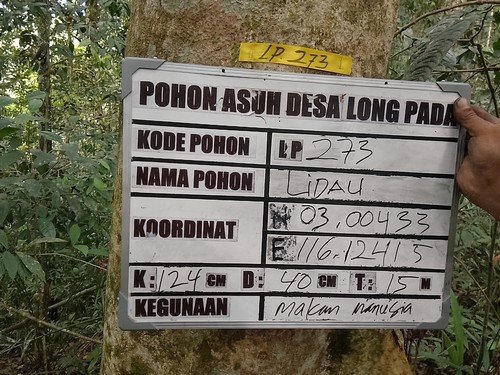 LP. 273
POHON ASUH DESA LONG PADA
KODE POHON LP 273
NAMA POHON LIDAU
KOORDINAT N 03.00433
E 116.12415
K: 124 CM D: 40 CM T: 15 M
KEGUNAAN makan manusia